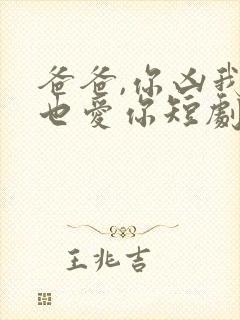 爸爸,你凶我
也愛你短劇
王兆吉